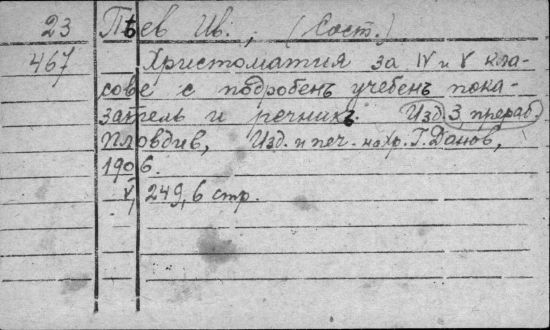 23 Пѣев Ив., (Сост.)
467 Христоматия за IV и V кла-
сове с подробенъ учебенъ пока-
затель и речникъ. Изд. 3 прераб.
Пловдив, Изд. и печ. на Хр. Г. Данов,
1906.
V, 249, 6 стр.